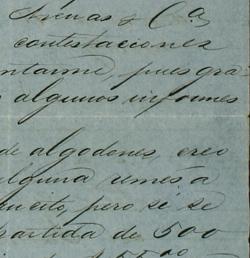 Arenas & Cª
contestaciones
ntarme, pues gra
algunos informes
de algodones, creo
alguna remesa
puerto, pero si se
partida de 500